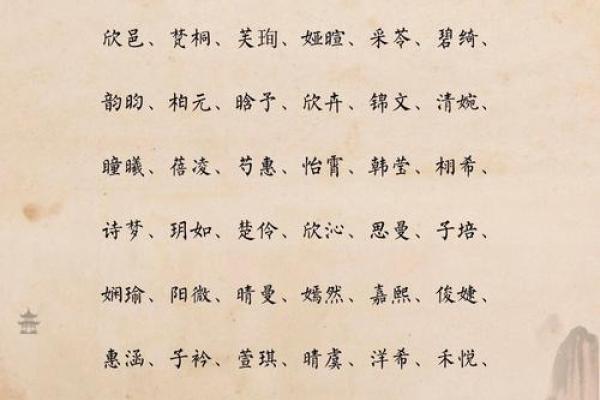 欣邑、梵桐、芙珣、娅暄、采苓、碧绮、
韵昀、柏元、晗予、欣卉、锦文、清婉、
曈曦、蓓凌、芍惠、怡霄、韩莹、栩希、
诗梦、玥如、楚伶、欣沁、思曼、子培、
娴瑜、阳微、晴曼、嫣然、嘉熙、俊婕、
惠涵、子衿、萱琪、晴虞、洋希、禾悦、